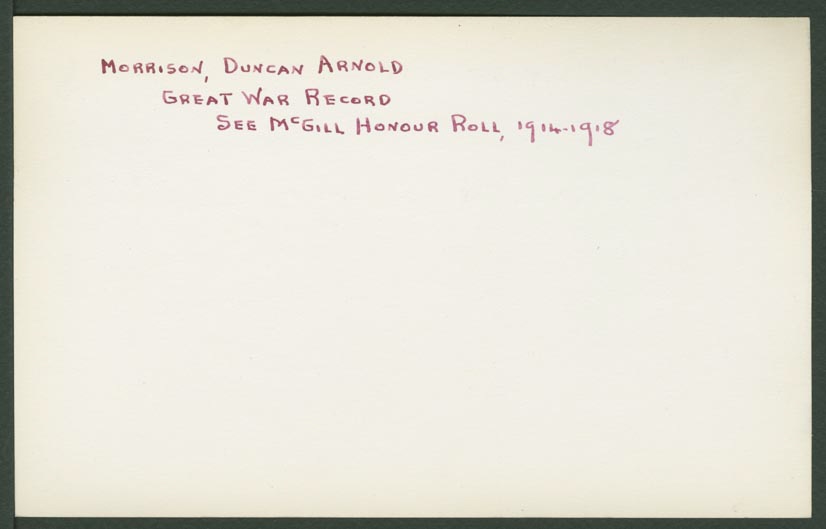 MORRISON, DUNCAN ARNOLD
GREAT WAR RECORD
SEE McGILL HONOUR ROLL, 1914-1918